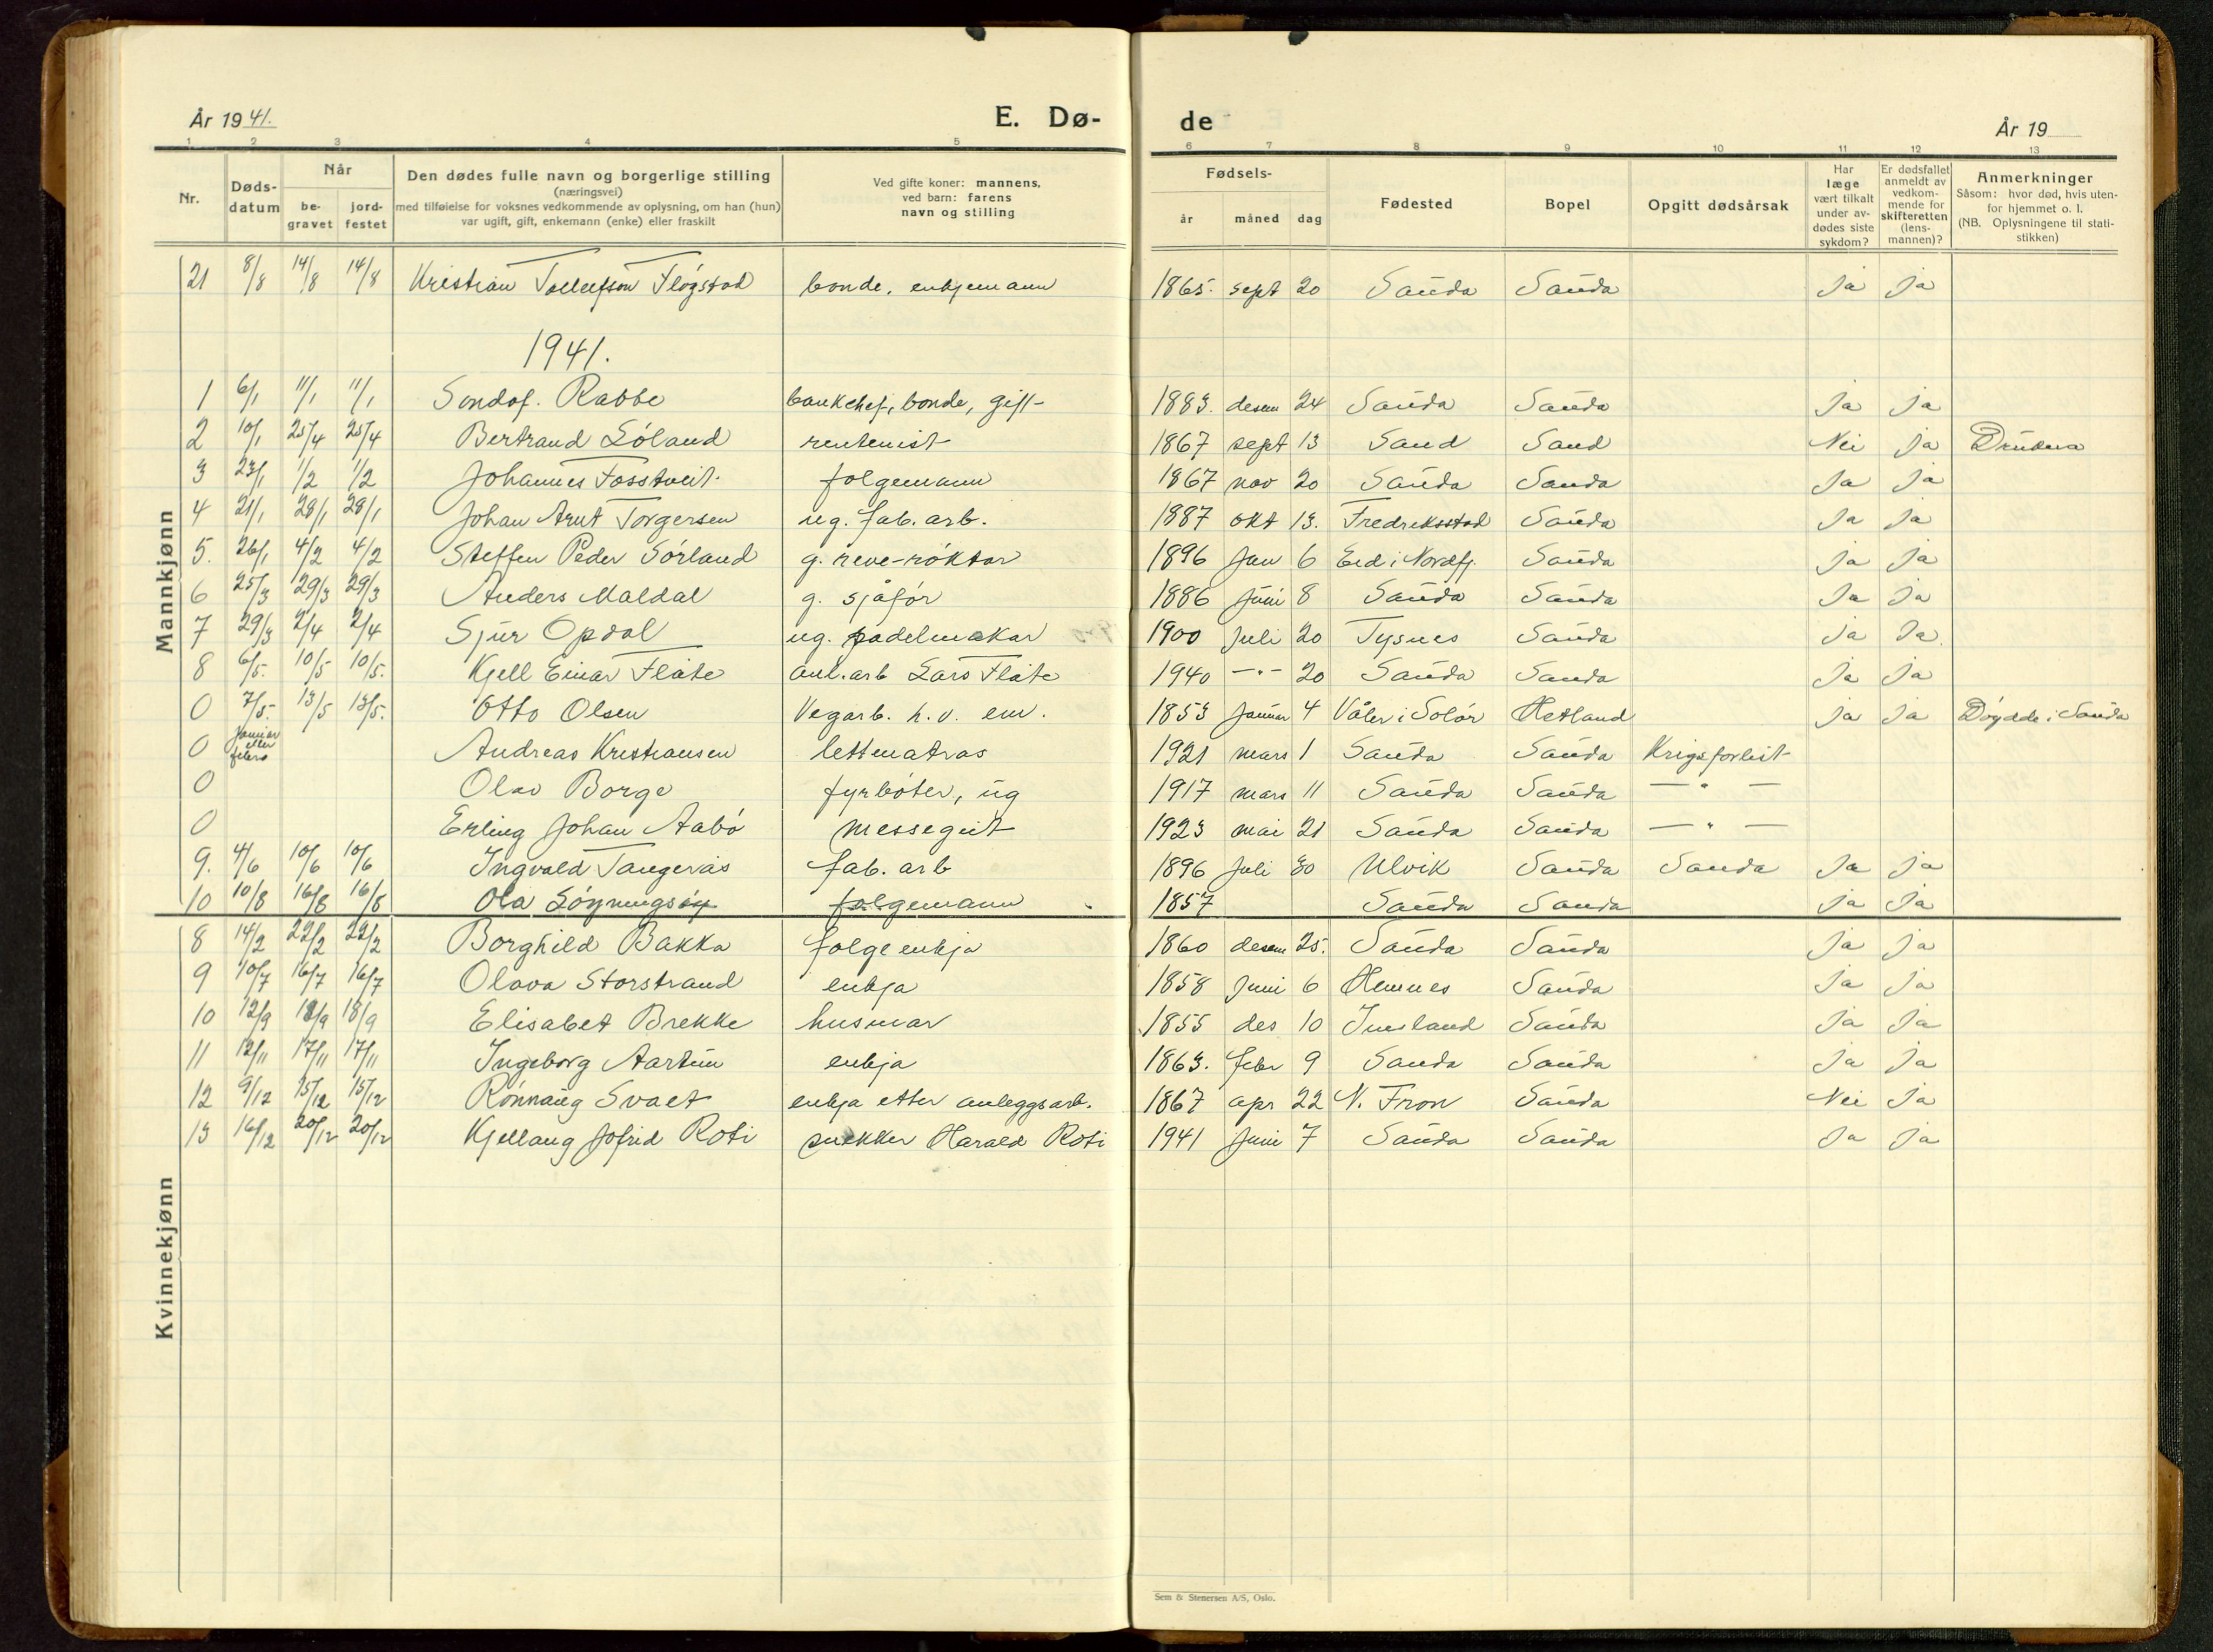 År 1941.
E. Dø-
de
År 19
1 2 3 4 5 6 7 8 9 10 11 12 13
Nr.
Døds-
datum
Når
be-
gravet
jord-
festet
Den dødes fulle navn og borgerlige stilling
(næringsvei)
med tilføielse for voksnes vedkommende av oplysning, om han (hun)
var ugift, gift, enkemann (enke) eller fraskilt
Ved gifte koner: mannens,
ved barn: farens
navn og stilling
Fødsels-
år måned dag
Fødested
Bopel
Opgitt dødsårsak
Har
læge
vært tilkalt
under av-
dødes siste
sykdom?
Er dødsfallet
anmeldt av
vedkom-
mende for
skifteretten
(lens-
mannen)?
Anmerkninger
Såsom: hvor død, hvis uten-
for hjemmet o. l.
(NB. Oplysningene til stati-
stikken)
Mannkjønn
21 8/8 14/8 14/8 Kristian Tollefson Fløgstad bonde, enkjemann 1865. sept 20 Sauda Sauda Ja Ja
1941.
1 6/1 11/1 11/1 Sondof. Rabbe bankchef, bonde, gift 1883. desem 24 Sauda Sauda Ja Ja
2 10/1 25/4 25/4 Bertrand Løland rentenist 1867 sept 13 Sand Sand Nei Ja Drukna
3 23/1 1/2 1/2 Johannes Fosstveit. folgemann 1867 nov 20 Sauda Sauda Ja Ja
4 21/1 28/1 28/1 Johan Arnt Torgersen ug. fab. arb. 1887 okt 13. Fredriksstad Sauda Ja Ja
5. 26/1 4/2 4/2 Steffen Peder Sørland g. reve-røktar 1896 Jan 6 Eid i Nordfj. Sauda Ja Ja
6 25/3 29/3 29/3 Anders Maldal g. sjåfør 1886 Juni 8 Sauda Sauda Ja Ja
7 29/3 2/4 2/4 Sjur Opdal ug. sadelmakar 1900 Juli 20 Tysnes Sauda Ja Ja.
8 6/5. 10/5 10/5. Kjell Einar Flåte anl. arb Lars Flåte 1940 -"- 20 Sauda Sauda Ja Ja
0 7/5. 13/5 13/5. Otto Olsen Vegarb. h. v. em. 1853 Januar 4 Våler i Solør Hetland Ja Ja Døydde i Sauda
0 Januar eller febru Andreas Kristiansen lettmatros 1921 mars 1 Sauda Sauda Krigsforlist
0 Olav Borge fyrbøter, ug 1917 mars 11 Sauda Sauda — " —
0 Erling Johan Aabø messegut 1923 mai 21 Sauda Sauda — " —
9. 4/6 10/6 10/6 Ingvald Tangerås fab. arb 1896 Juli 30 Ulvik Sauda Sauda Ja Ja
10 10/8 16/8 16/8 Ola folgemann 1857 Sauda Sauda Ja Ja
Kvinnekjønn
8 14/2 22/2 22/2 Borghild Bakka folgeenkja 1860 desem 25. Sauda Sauda Ja Ja
9 10/7 16/7 16/7 Olava Storstrand enkja 1858 Juni 6 Hemnes Sauda Ja Ja
10 12/9 18/9 18/9 Elisabet Brekke husmor 1855 des 10 Imsland Sauda Ja Ja
11 12/11 17/11 17/11 Ingeborg Aartun enkja 1863. febr 9 Sauda Sauda Ja Ja
12 9/12 15/12 15/12 Rønnaug Svaet enkja etter anleggsarb. 1867 apr 22 N. Fron Sauda Nei Ja
13 16/12 20/12 20/12 Kjellaug Jofrid Roti snekker Harald Roti 1941 Juni 7 Sauda Sauda Ja Ja
Sem & Stenersen A/S, Oslo.